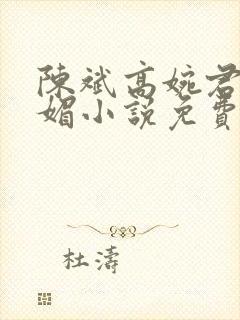 陳斌高婉君
媚小說免費
杜濤